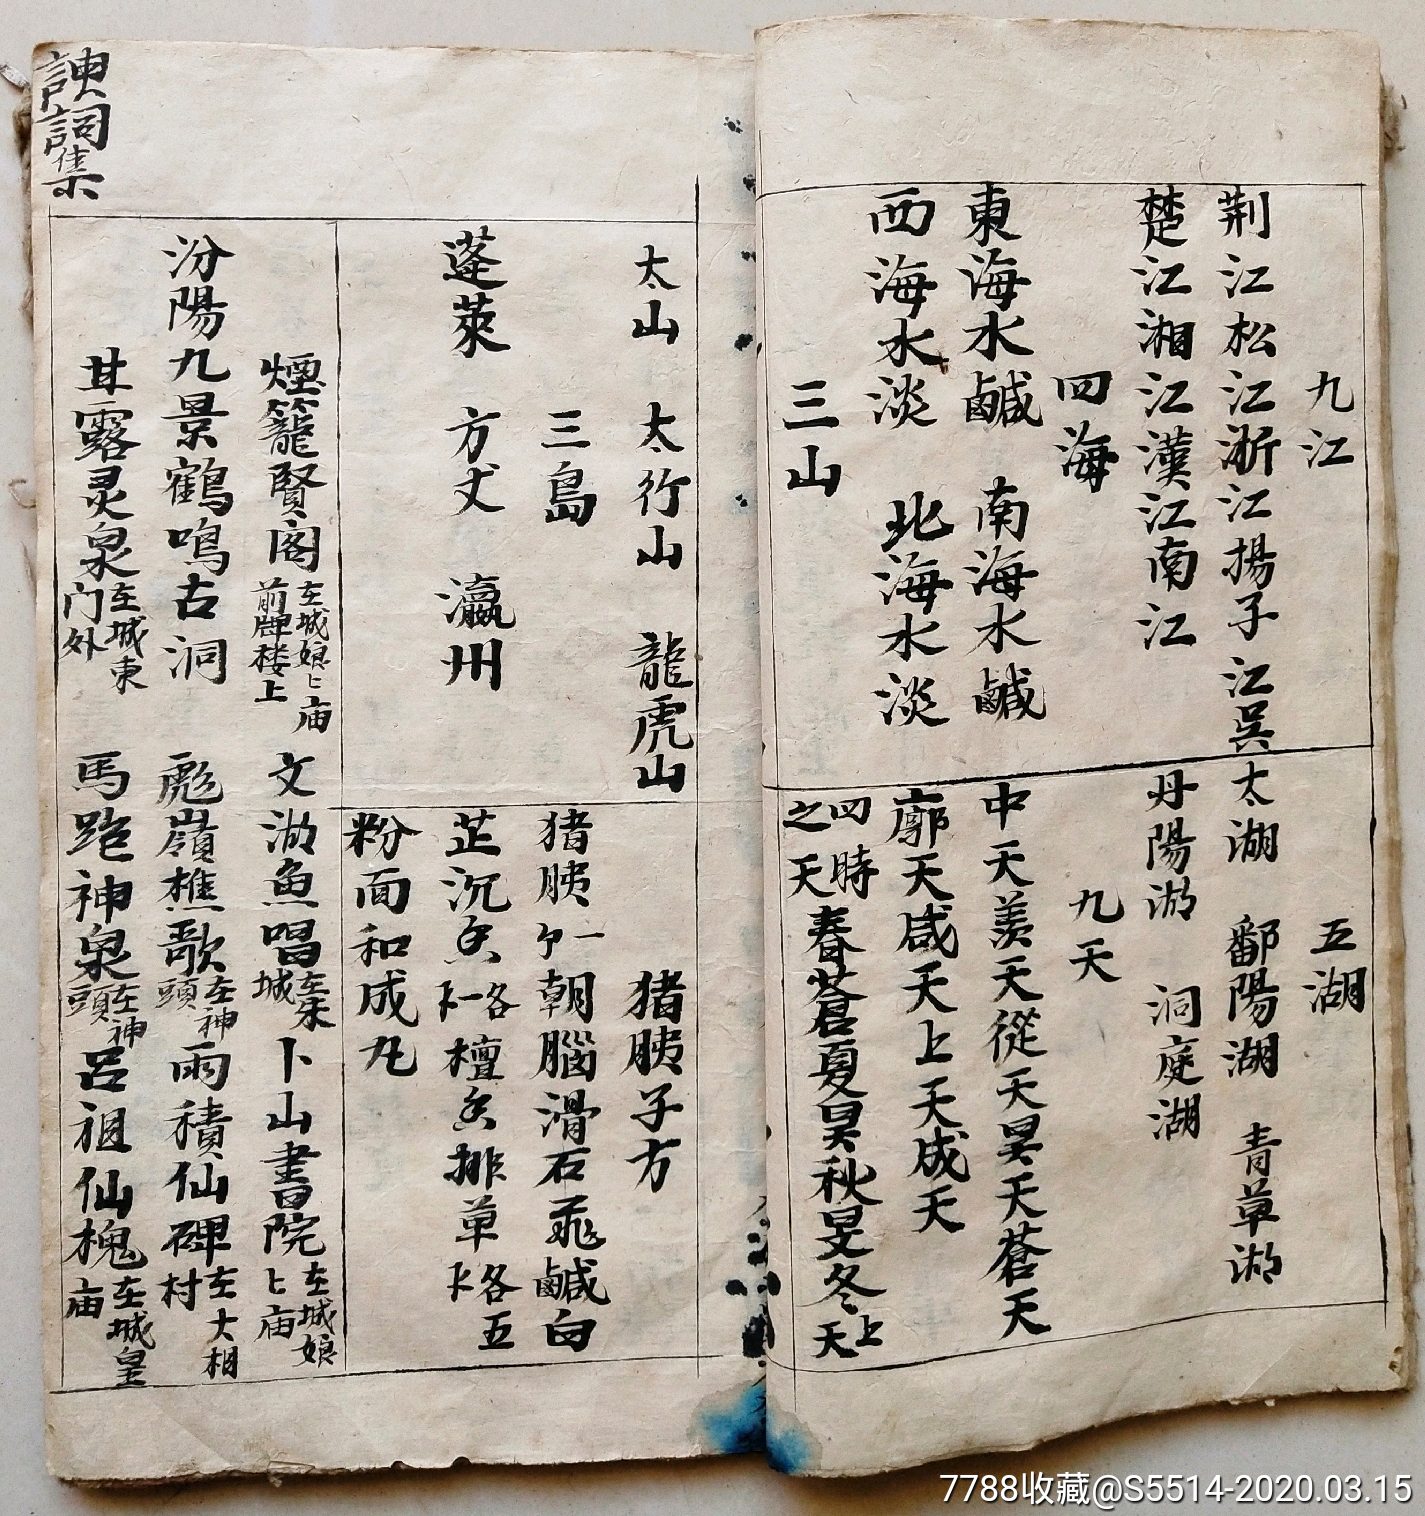 九江
荆江松江浙江揚子江吳
楚江湘江漢江南江
四海
東海水鹹 南海水鹹
西海水淡 北海水淡
三山
五湖
太湖 鄱陽湖 青草湖
丹陽湖 洞庭湖
九天
中天羨天從天昊天蒼天
廓天咸天上天成天
四時之天春蒼夏昊秋旻冬上天
太山 太行山 龍虎山
三島
蓬萊 方丈 瀛州
猪胰子方
猪胰一 朝腦滑石飛鹹白
芷沉香各一 檀香排草各五
粉面和成丸
煙籠賢阁在城娘〻庙前牌楼上
汾陽九景鶴鳴古洞
甘露灵泉在城東门外
文湖魚唱城 卜山書院在城娘〻庙
彪嶺樵歌在神頭 雨積仙碑在大相村
馬跑神泉在神頭 呂祖仙槐在城皇庙
諛詞集
7788收藏@S5514-2020.03.15